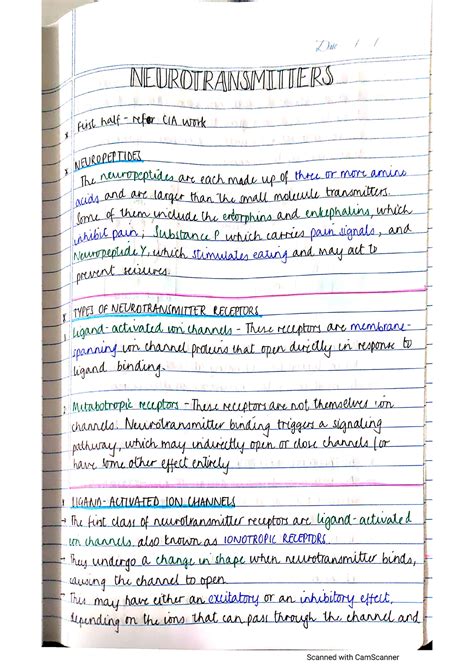 Date / /
NEUROTRANSMITTERS
x First half - refer CIA work
x NEUROPEPTIDES
The neuropeptides are each made up of three or more amino
acids and are larger than the small molecule transmitters.
Some of them include the endorphins and enkephalins, which
inhibit pain; Substance P which carries pain signals, and
Neuropeptide Y, which stimulates eating and may act to
prevent seizures.
x TYPES OF NEUROTRANSMITTER RECEPTORS
1. Ligand-activated ion channels - These receptors are membrane-
spanning ion channel proteins that open directly in response to
ligand binding.
2. Metabotropic receptors - These receptors are not themselves ion
channels. Neurotransmitter binding triggers a signaling
pathway, which may indirectly open or close channels (or
have some other effect entirely
x LIGAND-ACTIVATED ION CHANNELS
→ The first class of neurotransmitter receptors are ligand-activated
ion channels, also known as IONOTROPIC RECEPTORS
→ They undergo a change in shape when neurotransmitter binds,
causing the channel to open.
→ This may have either an excitatory or an inhibitory effect,
depending on the ions that can pass through the channel and
Scanned with CamScanner